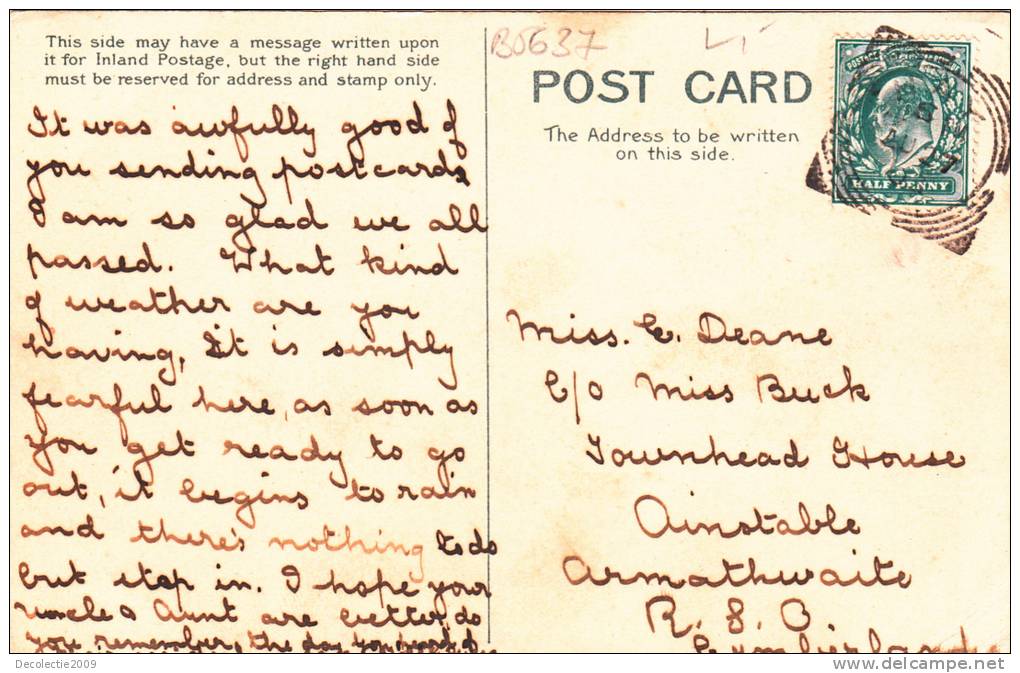 This side may have a message written upon
it for Inland Postage, but the right hand side
must be reserved for address and stamp only.
It was awfully good of
you sending postcards
I am so glad we all
passed. What kind
of weather are you
having, It is simply
fearful here, as soon as
you get ready to go
out, it begins to rain
and there's nothing to do
but stop in. I hope your
Uncle & Aunt are better, do
you remember, the day you heard of
B05637
POST CARD
The Address to be written
on this side.
HALF PENNY
Miss. E. Deane
C/o Miss Buck
Townhead House
Ainstable
Armathwaite
R. S. O
Cumberland
Decolectie2009
www.delcampe.net